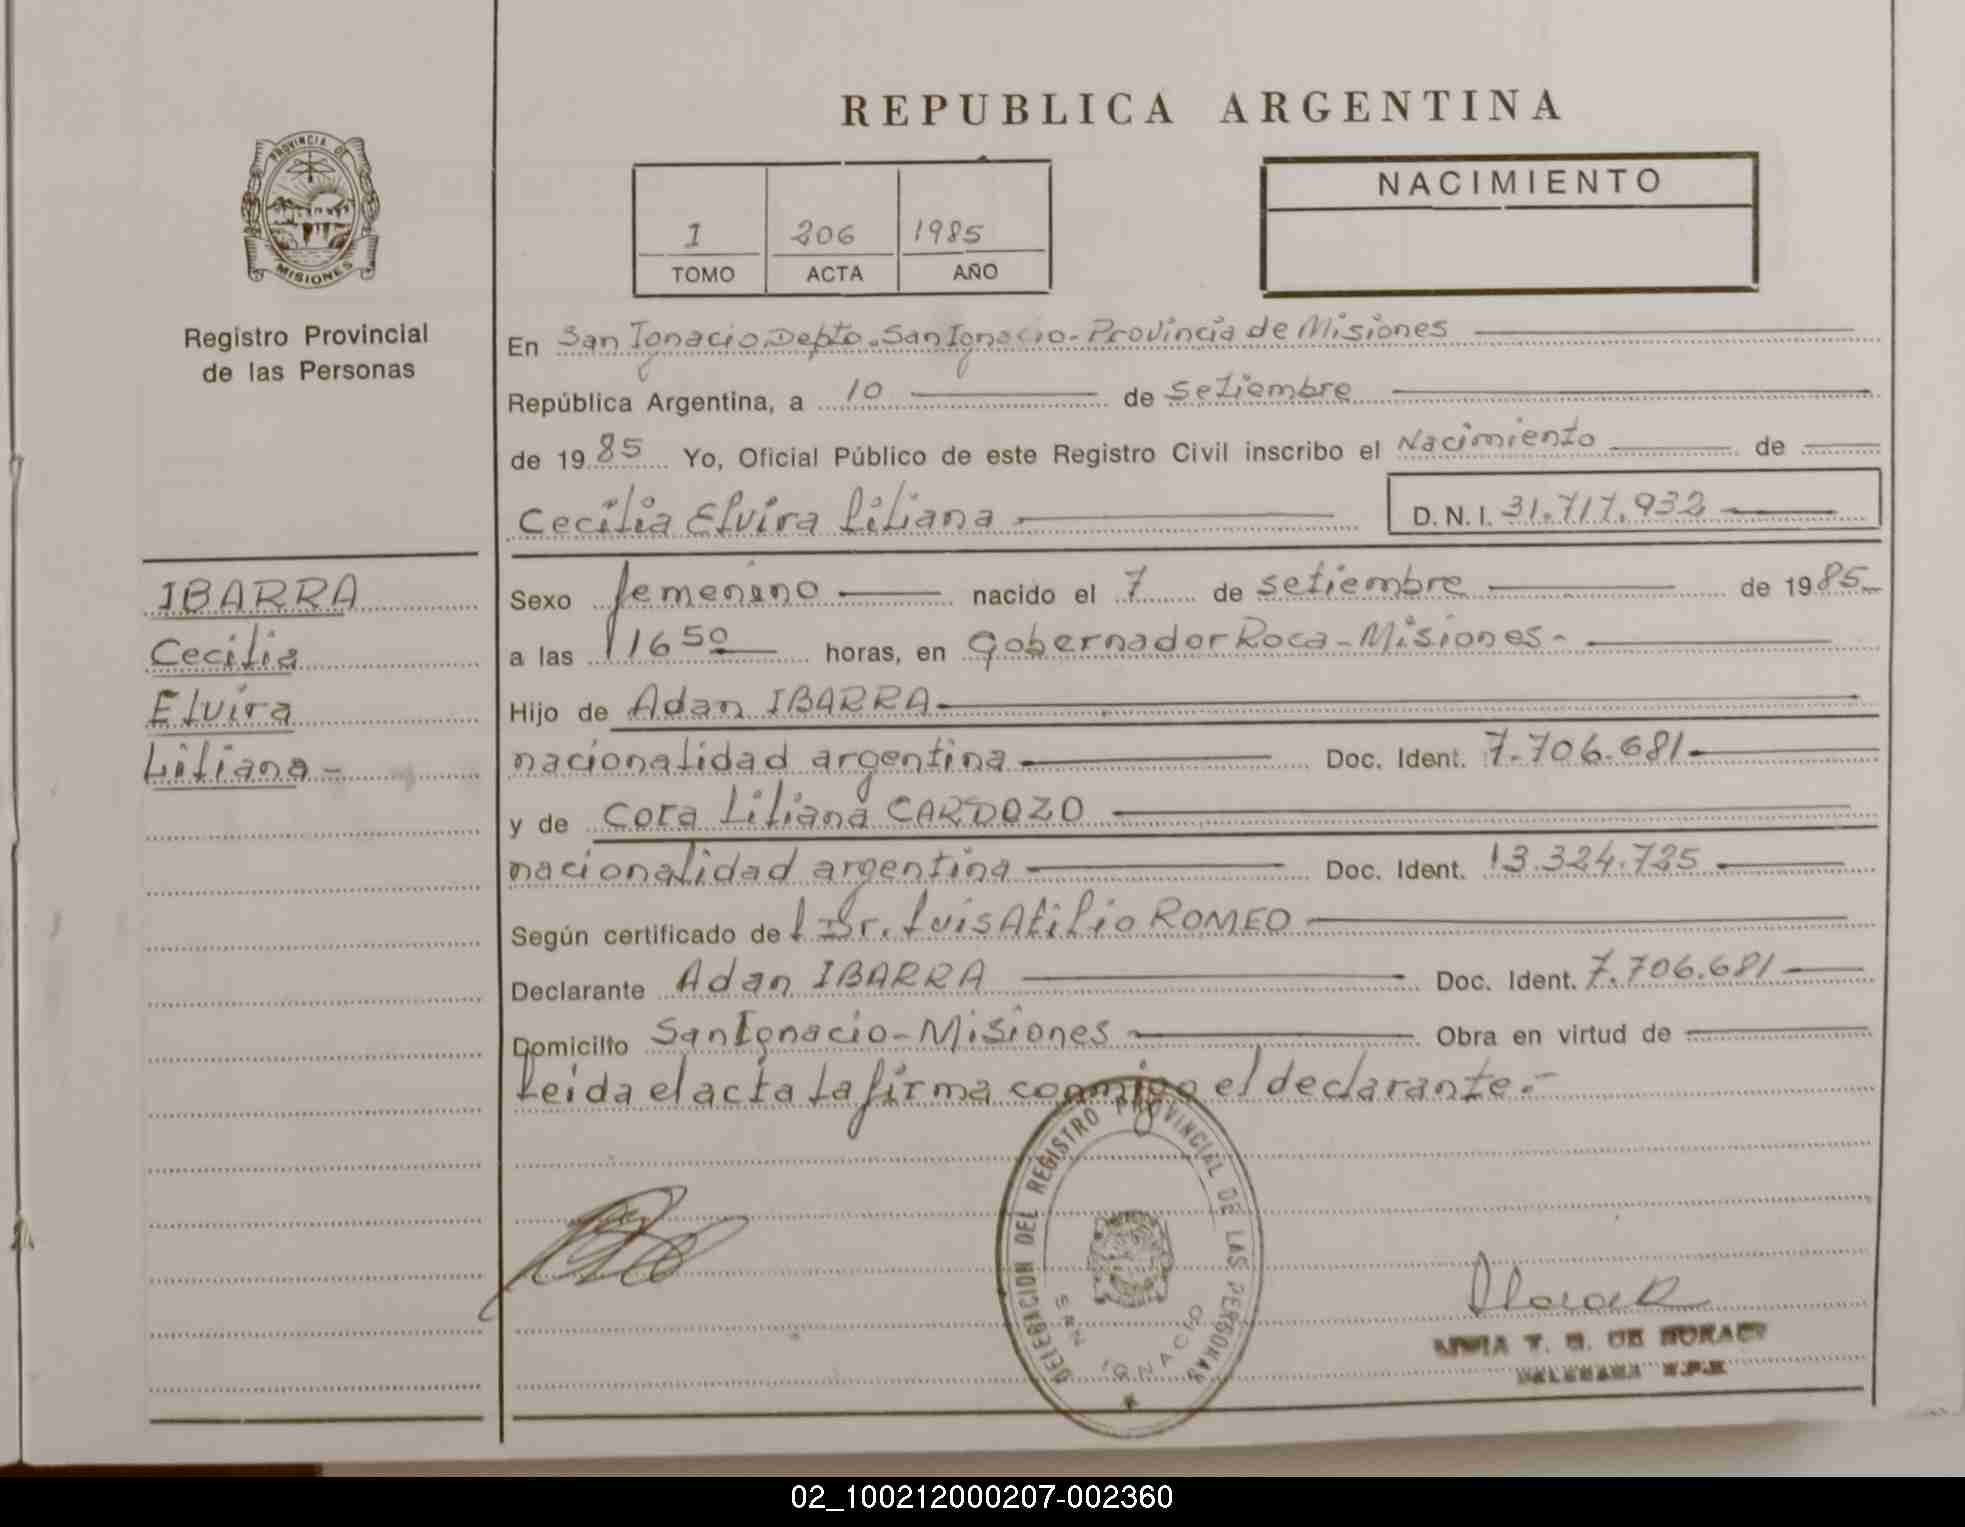 REPUBLICA ARGENTINA
PROVINCIA DE
MISIONES
Registro Provincial
de las Personas
I 206 1985
TOMO ACTA AÑO
NACIMIENTO
En San Ignacio Depto. San Ignacio - Provincia de Misiones
República Argentina, a 10 de Setiembre
de 1985 Yo, Oficial Público de este Registro Civil inscribo el Nacimiento de
Cecilia Elvira Liliana D. N. I. 31.717.932
IBARRA
Cecilia
Elvira
Liliana -
Sexo femenino nacido el 7 de setiembre de 1985
a las 16 50 horas, en Gobernador Roca - Misiones -
Hijo de Adan IBARRA
nacionalidad argentina Doc. Ident. 7.706.681
y de Cora Liliana CARDOZO
nacionalidad argentina Doc. Ident. 13.324.725
Según certificado del Dr. Luis Atilio ROMEO
Declarante Adan IBARRA Doc. Ident. 7.706.681
Domicilio San Ignacio - Misiones Obra en virtud de
Leida el acta la firma conmigo el declarante.-
DELEGACION DEL REGISTRO PROVINCIAL DE LAS PERSONAS
SAN IGNACIO
T. DE
02_100212000207-002360